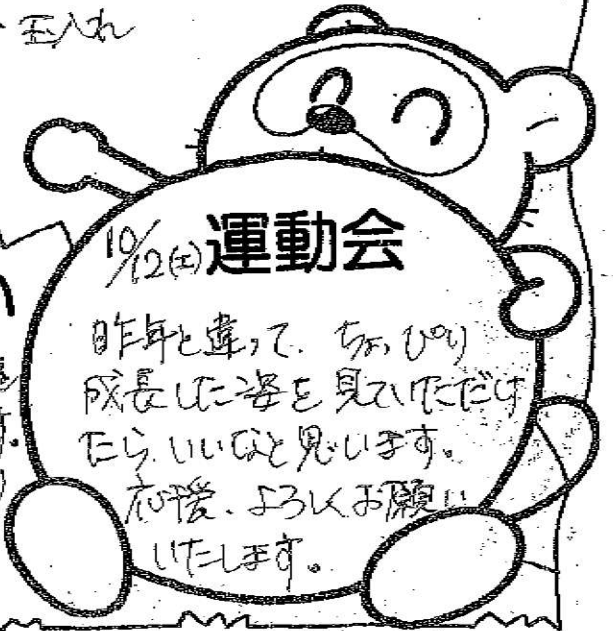 玉入れ
10/12(土) 運動会
昨年と違って、ちょっぴり
成長した姿を見ていただけ
たら、いいなと思います。
応援、よろしくお願い
いたします。